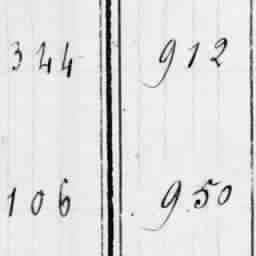 344 912
106 950